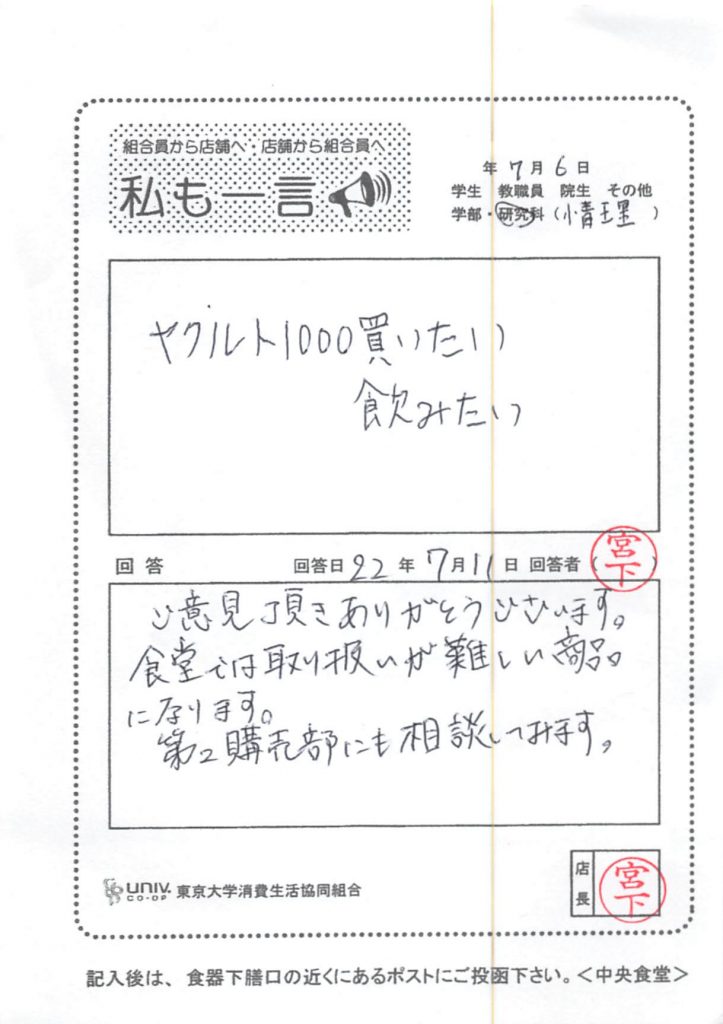 組合員から店舗へ・店舗から組合員へ
私も一言
年 7月 6日
学生 教職員 院生 その他
学部・研究科(小青王里)
ヤクルト1000買いたい
飲みたい
回答 回答日 22年 7月 11日 回答者(宮下)
ご意見頂きありがとうございます。
食堂では取り扱いが難しい商品
になります。
第2購売部にも相談してみます。
UNIV. CO-OP 東京大学消費生活協同組合
店長 宮下
記入後は、食器下膳口の近くにあるポストにご投函下さい。<中央食堂>